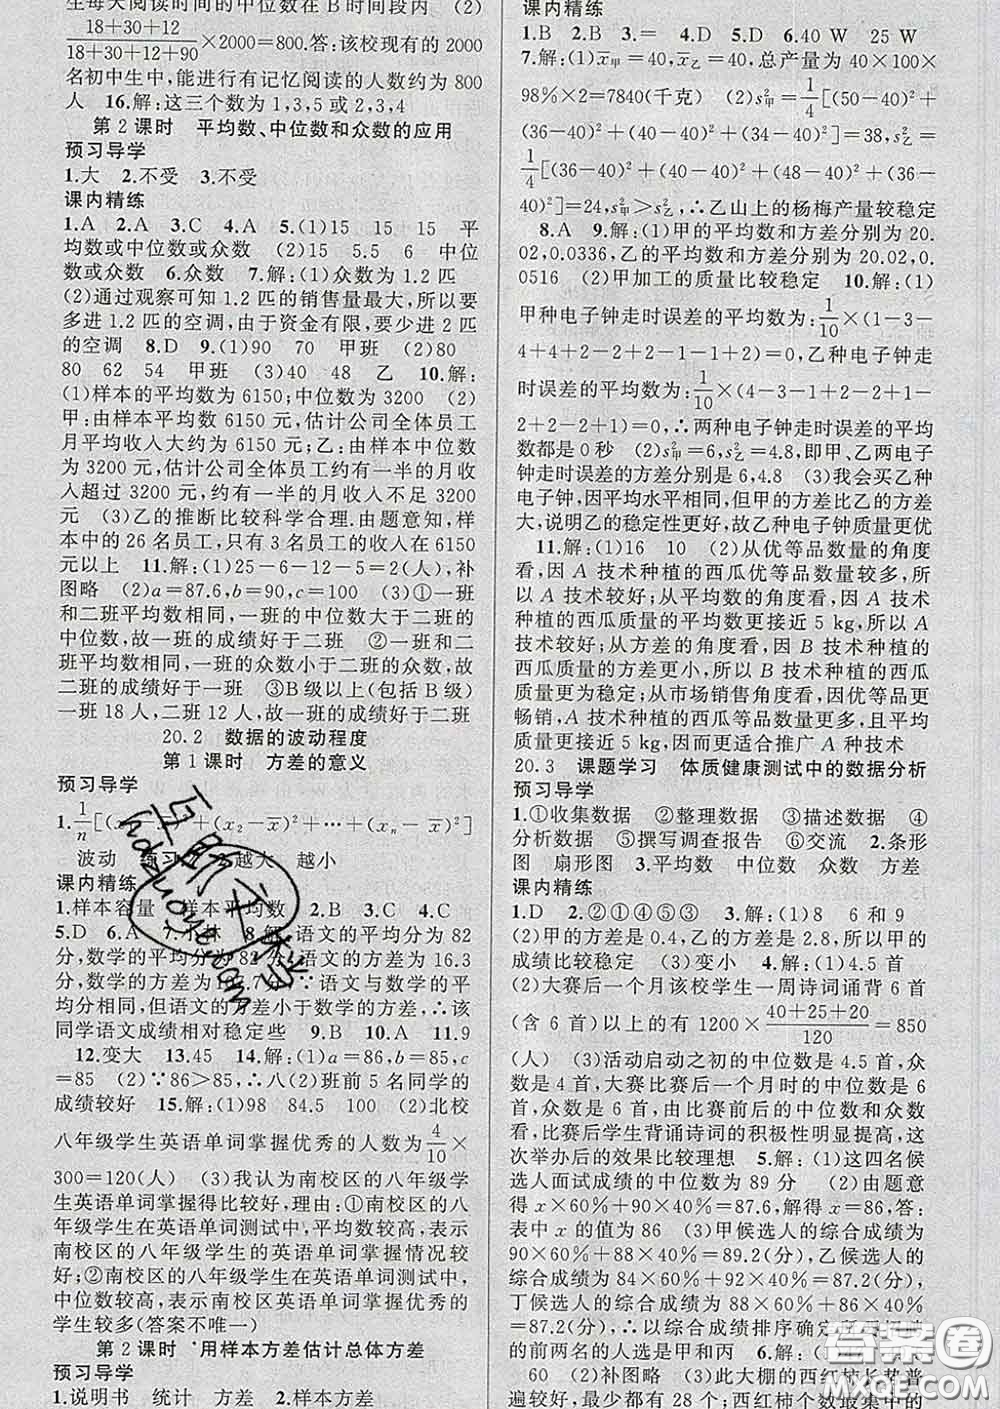 生每天阅读时间的中位数在B时间段内 (2)
18+30+12/18+30+12+90×2000=800.答:该校现有的2000
名初中生中,能进行有记忆阅读的人数约为800
人 16.解:这三个数为1,3,5或2,3,4
第2课时 平均数、中位数和众数的应用
预习导学
1.大 2.不受 3.不受
课内精练
1.A 2.A 3.C 4.A 5.(1)15 15 15 平
均数或中位数或众数 (2)15 5.5 6 中位
数或众数 6.众数 7.解:(1)众数为1.2匹
(2)通过观察可知1.2匹的销售量最大,所以要
多进1.2匹的空调,由于资金有限,要少进2匹
的空调 8.D 9.(1)90 70 甲班 (2)80
80 62 54 甲班 (3)40 48 乙 10.解:
(1)样本的平均数为6150;中位数为3200 (2)
甲:由样本平均数6150元,估计公司全体员工
月平均收入大约为6150元;乙:由样本中位数
为3200元,估计公司全体员工约有一半的月收
入超过3200元,约有一半的月收入不足3200
元 (3)乙的推断比较科学合理.由题意知,样
本中的26名员工,只有3名员工的收入在6150
元以上 11.解:(1)25-6-12-5=2(人),补
图略 (2)a=87.6,b=90,c=100 (3)①一班
和二班平均数相同,一班的中位数大于二班的
中位数,故一班的成绩好于二班 ②一班和二
班平均数相同,一班的众数小于二班的众数,故
二班的成绩好于一班 ③B级以上(包括B级)
一班18人,二班12人,故一班的成绩好于二班
20.2 数据的波动程度
第1课时 方差的意义
预习导学
1.1/n[(x +(x₂-x̄)²+…+(xₙ-x̄)²]
波动 越大 越小
课内精练
1.样本容量 样本平均数 2.B 3.C 4.C
5.D 6.A 7.小林 8.解:语文的平均分为82
分,数学的平均分为82分,语文的方差为16.3
分,数学的方差为 .7分.∵语文与数学的平
均分相同,但语文的方差小于数学的方差,∴该
同学语文成绩相对稳定些 9.B 10.A 11.9
12.变大 13.45 14.解:(1)a=86,b=85,c
=85 (2)∵86>85,∴八(2)班前5名同学的
成绩较好 15.解:(1)98 84.5 100 (2)北校
八年级学生英语单词掌握优秀的人数为4/10×
300=120(人) (3)我认为南校区的八年级学
生英语单词掌握得比较好,理由:①南校区的八
年级学生在英语单词测试中,平均数较高,表示
南校区的八年级学生的英语单词掌握情况较
好;②南校区的八年级学生在英语单词测试中,
中位数较高,表示南校区英语单词掌握优秀的
学生较多(答案不唯一)
第2课时 用样本方差估计总体方差
预习导学
1.说明书 统计 方差 2.样本方差
课内精练
1.B 2.B 3.= 4.D 5.D 6.40 W 25 W
7.解:(1)x̄甲=40,x̄乙=40,总产量为40×100×
98%×2=7840(千克) (2)s²甲=1/4[(50-40)²+
(36-40)²+(40-40)²+(34-40)²]=38,s²乙=
1/4[(36-40)²+(40-40)²+(48-40)²+(36-
40)²]=24,s²甲>s²乙,∴乙山上的杨梅产量较稳定
8.A 9.解:(1)甲的平均数和方差分别为20.
02,0.0336,乙的平均数和方差分别为20.02,0.
0516 (2)甲加工的质量比较稳定 10.解:(1)
甲种电子钟走时误差的平均数为:1/10×(1-3-
4+4+2-2+2-1-1+2)=0,乙种电子钟走
时误差的平均数为:1/10×(4-3-1+2-2+1-
2+2-2+1)=0,∴两种电子钟走时误差的平均
数都是0秒 (2)s²甲=6,s²乙=4.8,即甲、乙两电子
钟走时误差的方差分别是6,4.8 (3)我会买乙种
电子钟,因平均水平相同,但甲的方差比乙的方差
大,说明乙的稳定性更好,故乙种电子钟质量更优
11.解:(1)16 10 (2)从优等品数量的角度
看,因A技术种植的西瓜优等品数量较多,所
以A技术较好;从平均数的角度看,因A技术
种植的西瓜质量的平均数更接近5 kg,所以A
技术较好;从方差的角度看,因B技术种植的
西瓜质量的方差更小,所以B技术种植的西瓜
质量更为稳定;从市场销售角度看,因优等品更
畅销,A技术种植的西瓜优等品数量更多,且
质量更接近5 kg,因而更适合推广A种技术
20.3 课题学习 体质健康测试中的数据分析
预习导学
1.①收集数据 ②整理数据 ③描述数据 ④
分析数据 ⑤撰写调查报告 ⑥交流 2.条形
图 扇形图 3.平均数 中位数 众数 方差
课内精练
1.D 2.②①④⑤③ 3.解:(1)8 6和9
(2)甲的方差是0.4,乙的方差是2.8,所以甲的
成绩比较稳定 (3)变小 4.解:(1)4.5首
(2)大赛后一个月该校学生一周诗词诵背6首
(含6首)以上的有1200×40+25+20/120=850
(人) (3)活动启动之初的中位数是4.5首,众
数是4首,大赛比赛后一个月时的中位数是6
首,众数是6首,由比赛前后的中位数和众数
看,比赛后学生背诵诗词的积极性明显提高,这
次举办后的效果比较理想 5.解:(1)这四名候
选人面试成绩的中位数为89分 (2)由题意
得,x×60%+90×40%=87.6,解得x=86,答:
表中x的值为86 (3)甲候选人的综合成绩为
90×60%+88×40%=89.2(分),乙候选人的综
合成绩为84×60%+92×40%=87.2(分),
丁候选人的综合成绩为88×60%+86×40%
=87.2(分),∴以综合成绩排序确定所要招聘的
前两名的人选是甲和丙 6.解:(1)
60 (2)补图略 (3)此大棚的西红柿长势普
遍较好,最少都有28个;西红柿个数最集中的
互助文档
hdzuoye.com
答案圈
MXQE.COM